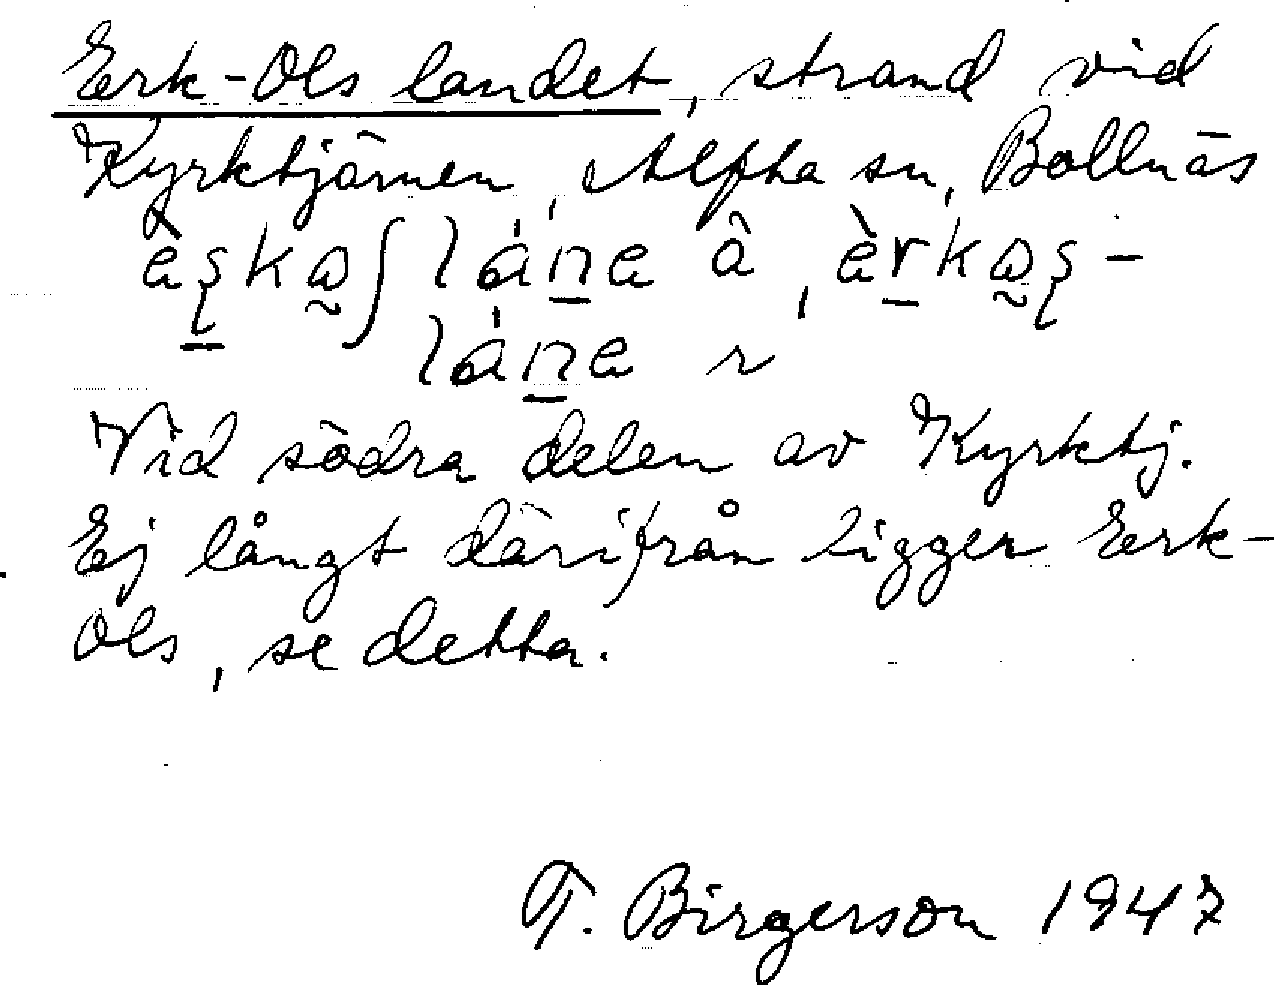 Erk-Ols landet, strand vid
Kyrktjärnen, Alfta sn, Bollnäs
Vid södra delen av Kyrktj.
Ej långt därifrån ligger Erk-
Ols, se detta.
T. Birgerson 1947